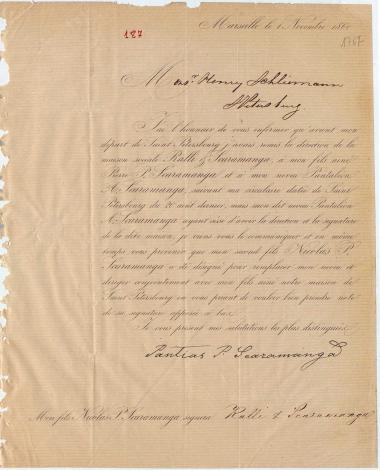 Marseille le 1 Novembre 186
187
1867
Monsr. Henry Schliemann
St Petersburg
J'ai l'honneur de vous informer qu'avant mon
départ de Saint Pétersbourg j'avais remis la direction de la
maison sociale Ralli & Scaramanga, à mon fils aîné
Pierre P. Scaramanga et à mon neveu Pantaléon
A. Scaramanga, suivant ma circulaire datée de Saint
Pétersbourg du 20 août dernier, mais mon dit neveu Pantaléon
A. Scaramanga ayant cessé d'avoir la direction et la signature
de la dite maison, je viens vous le communiquer et en même
temps vous prévenir que mon second fils Nicolas P.
Scaramanga a été désigné pour remplacer mon neveu et
diriger conjointement avec mon fils aîné notre maison de
Saint Pétersbourg en vous priant de vouloir bien prendre note
de sa signature apposée à bas.
Je vous présente mes salutations les plus distinguées
Pantias P. Scaramanga
Mon fils Nicolas P. Scaramanga signera Ralli & Scaramanga